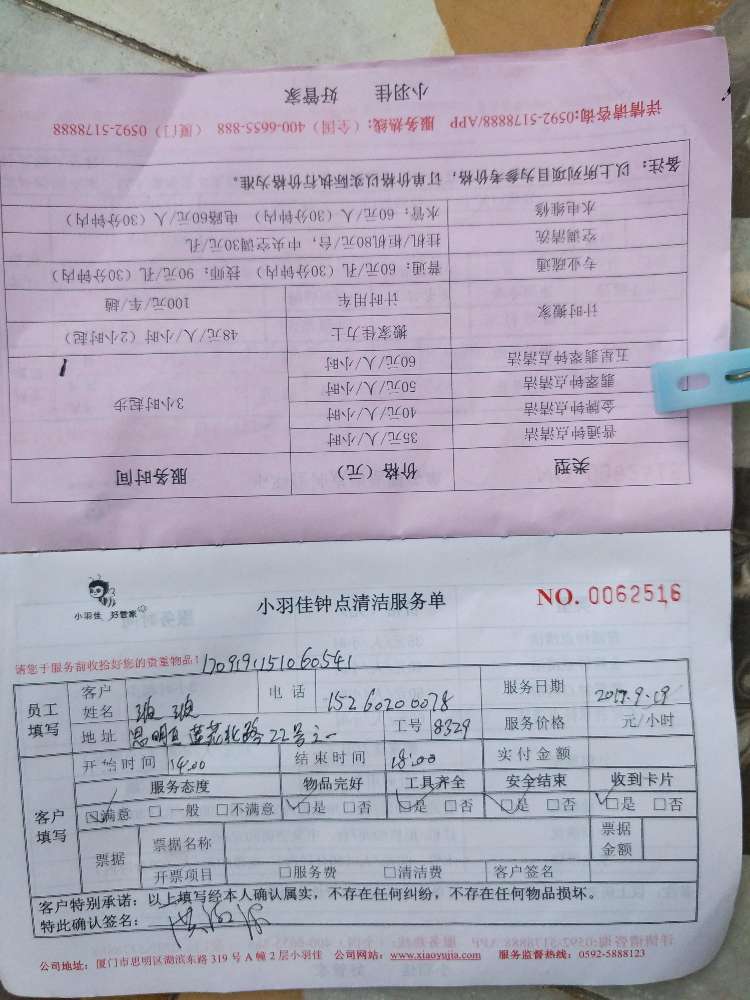 小羽佳 好管家
详情请咨询:0592-5178888/APP 服务热线:(全国)400-6655-888 (厦门)0592-5178888
备注: 以上所列项目为参考价格,订单价格以实际执行价格为准。
水电维修 水管:60元/人(30分钟内) 电路60元/人(30分钟内)
空调清洗 挂机/柜机80元/台,中央空调30元/孔
专业疏通 普通:60元/孔(30分钟内) 技师:90元/孔(30分钟内)
计时搬家 计时用车 100元/车/趟
搬家佳力士 48元/人/小时(2小时起)
五星翡翠钟点清洁 60元/人/小时
翡翠钟点清洁 50元/人/小时 3小时起步
金牌钟点清洁 40元/人/小时
普通钟点清洁 35元/人/小时
类型 价格(元) 服务时间
小羽佳 好管家 小羽佳钟点清洁服务单 NO. 0062516
请您于服务前收拾好您的贵重物品! 170919151060541
员工填写 客户姓名 电话 15260200078 服务日期 2017.9.19
地址 思明区莲花北路22号之一 工号 8329 服务价格 元/小时
客户填写 开始时间 14.00 结束时间 18:00 实付金额
服务态度 物品完好 工具齐全 安全结束 收到卡片
☑满意 □一般 □不满意 ☑是 □否 ☑是 □否 ☑是 □否 ☑是 □否
票据 票据名称 票据金额
开票项目 □服务费 □清洁费 客户签名
客户特别承诺:以上填写经本人确认属实,不存在任何纠纷,不存在任何物品损坏。
特此确认签名:
公司地址:厦门市思明区湖滨东路319号A幢2层小羽佳 公司网站:www.xiaoyujia.com 服务监督热线:0592-5888123